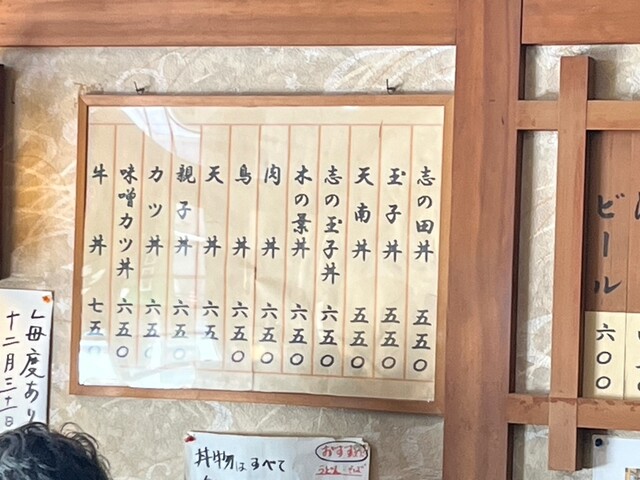 ビール
六〇〇
志の田丼 五五〇
玉子丼 五五〇
天南丼 五五〇
志の玉子丼 六五〇
木の葉丼 六五〇
肉丼 六五〇
鳥丼 六五〇
天丼 六五〇
親子丼 六五〇
カツ丼 六五〇
味噌カツ丼 六五〇
牛丼 七五〇
毎度あり
十二月三十一日
丼物はすべて
おすすめ
うどん そば